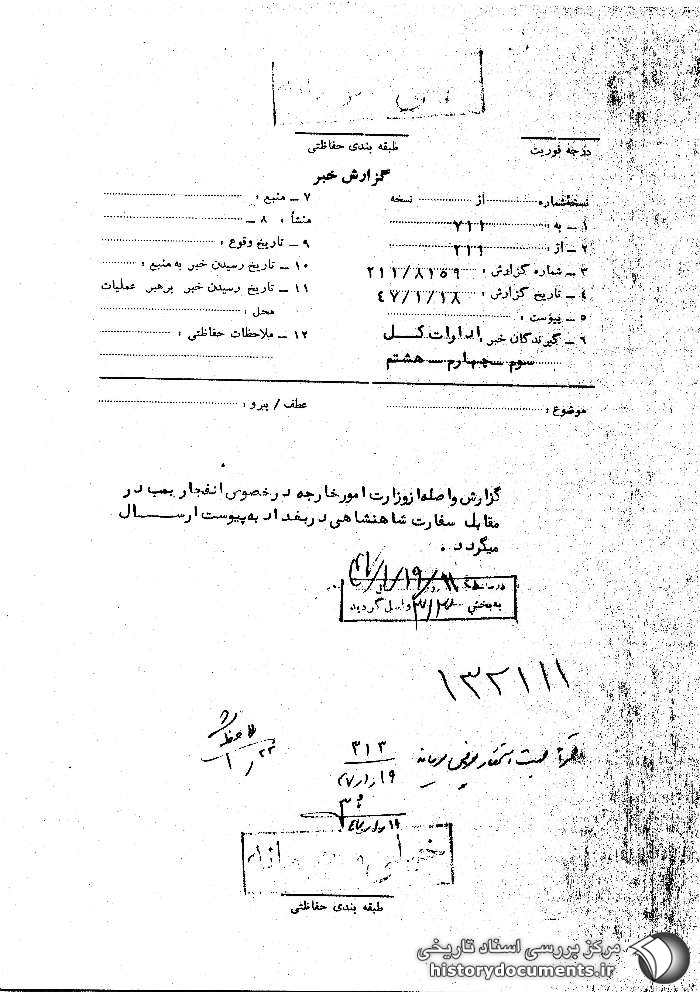 طبقه بندی حفاظتی
درجه فوریت
گزارش خبر
نسخه شماره از نسخه
۱ ـ به : ۷۱۱
۲ ـ از : ۲۱۱
۳ ـ شماره گزارش : ۲۱۱/۸۱۵۹
۴ ـ تاریخ گزارش : ۴۷/۱/۱۸
۵ ـ پیوست :
۶ ـ گیرندگان خبر : ادارات کل
سوم چهارم هشتم
۷ ـ منبع :
۸ ـ منشأ :
۹ ـ تاریخ وقوع :
۱۰ ـ تاریخ رسیدن خبر به منبع :
۱۱ ـ تاریخ رسیدن خبر برهبر عملیات
محل :
۱۲ ـ ملاحظات حفاظتی :
موضوع :
عطف / پیرو :
گزارش واصله از وزارت امور خارجه در خصوص انفجار بمب در
مقابل سفارت شاهنشاهی در بغداد به پیوست ارسال
میگردد .
به بخش واصل گردید
۱۳۲۱۱۱
ملاحظه شد
۱/۲۳
۳۱۳
طبقه بندی حفاظتی
مرکز بررسی اسناد تاریخی
historydocuments.ir